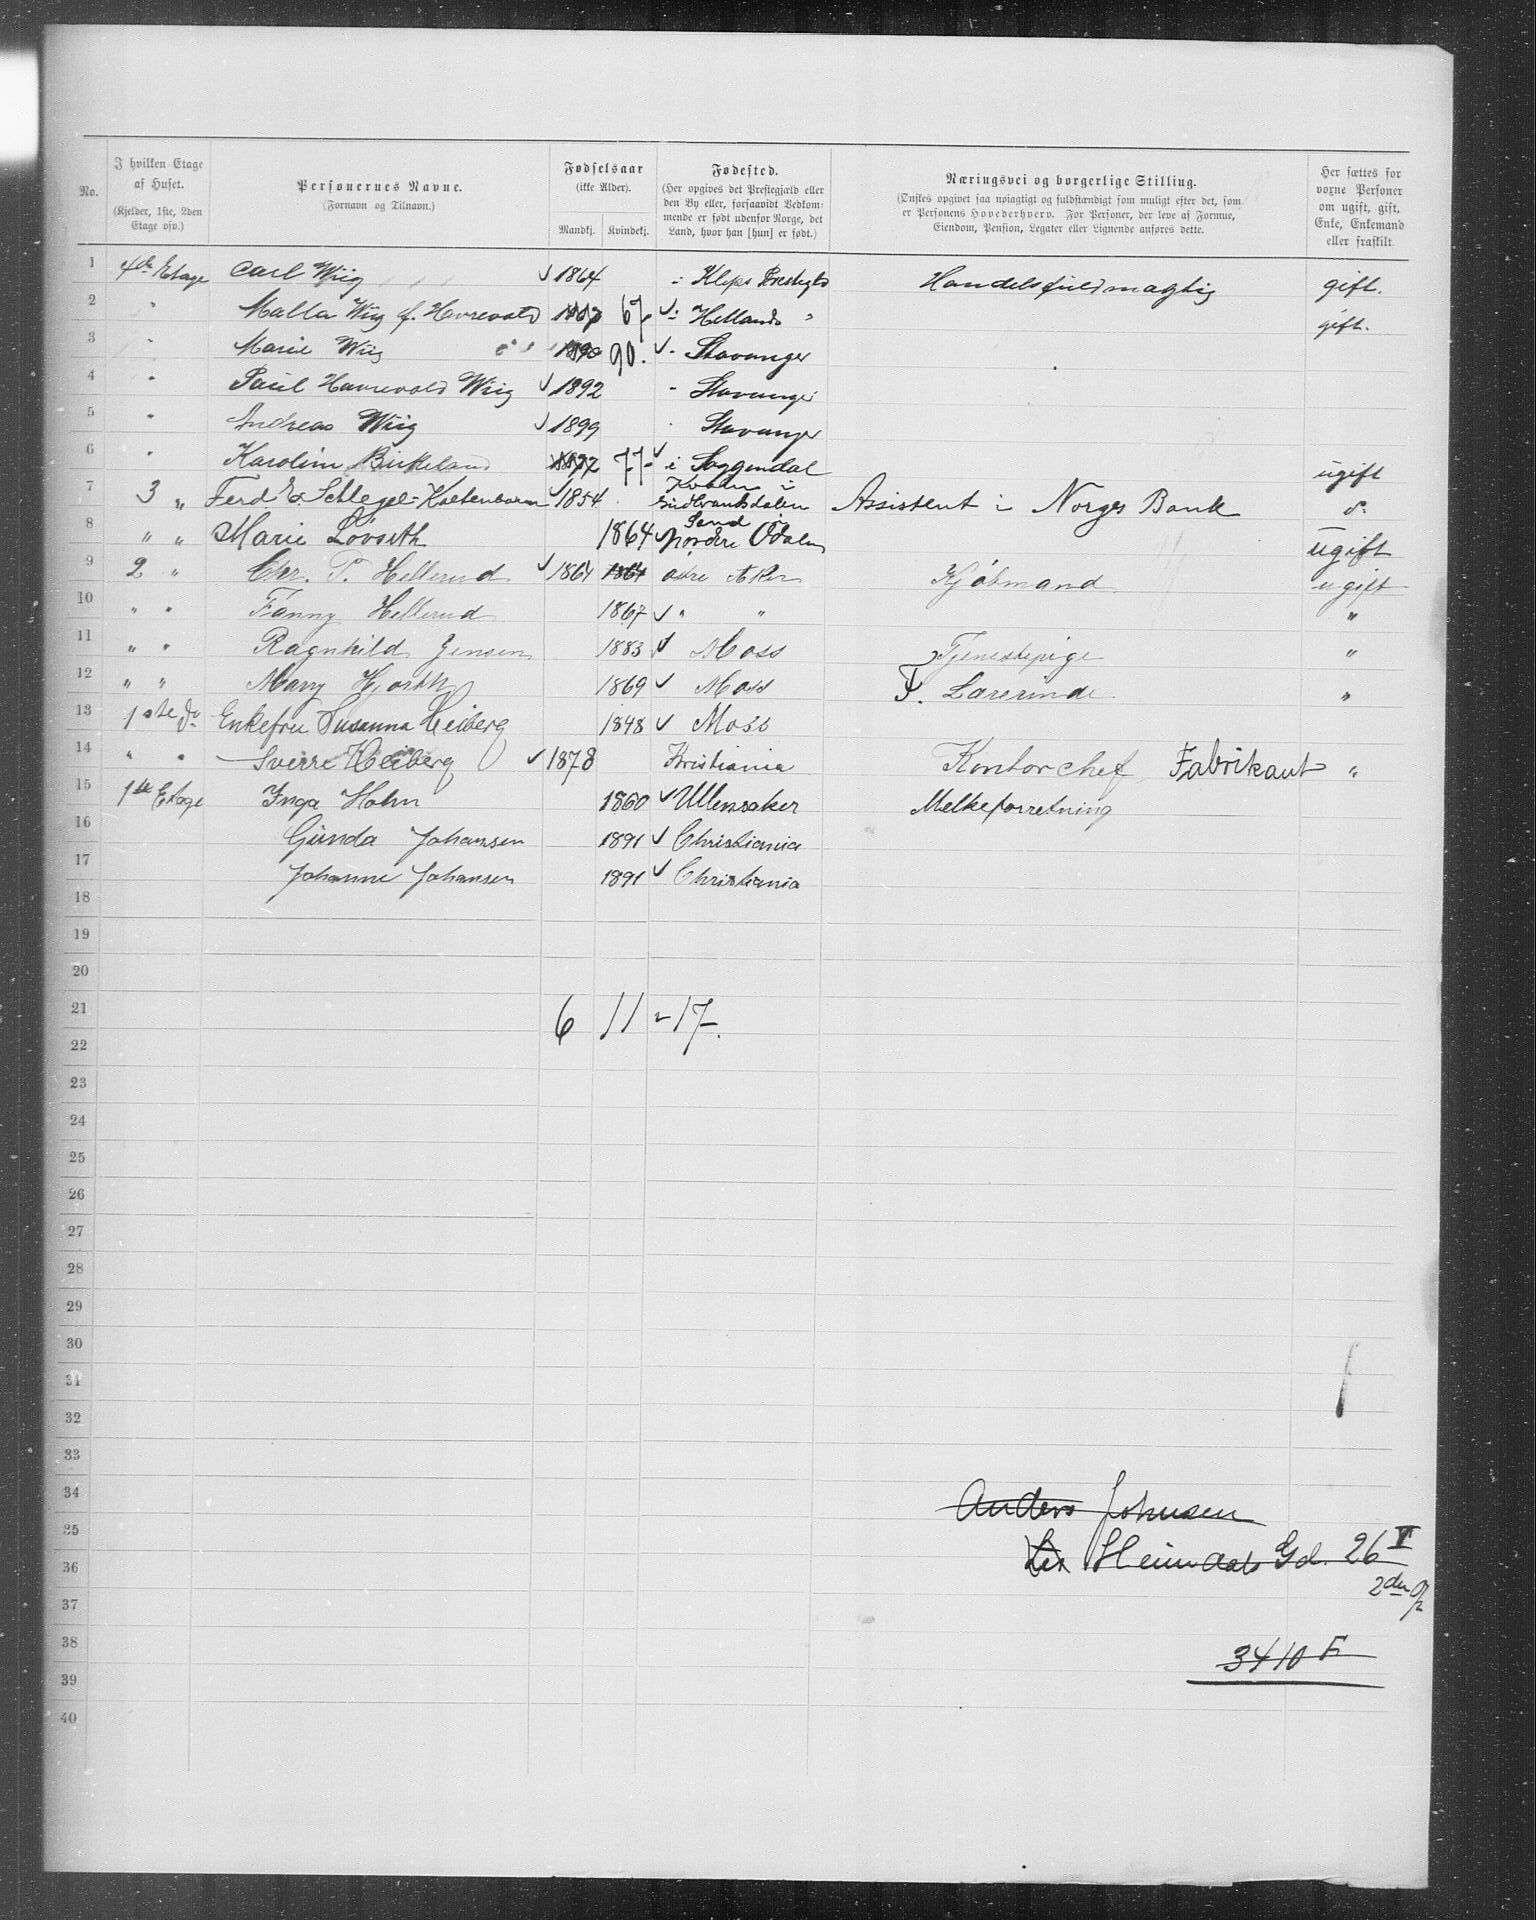 No.
I hvilken Etage af Huset. (Kjelder, 1ste, 2den Etage osv.)
Personernes Navne. (Fornavn og Tilnavn.)
Fødselsaar (ikke Alder). Mandkj. Kvindekj.
Fødested. (Her opgives det Prestegjæld eller den By eller, forsaavidt Vedkommende er født udenfor Norge, det Land, hvor han [hun] er født.)
Næringsvei og borgerlige Stilling. (Ønskes opgivet saa nøiagtigt og fuldstændigt som muligt efter det, som er Personens Hovederhverv. For Personer, der leve af Formue, Eiendom, Pension, Legater eller Lignende anføres dette.
Her sættes for voxne Personer om ugift, gift, Enke, Enkemand eller fraskilt.
1 4de Etage Carl Wiig 1864 i Kleps Prestegld Handelsfuldmægtig gift.
2 " Malla Wiig f. Havrevold 1867 67 i Hellands " gift.
3 " Marie Wiig 1890 90. " Stavanger
4 " Paul Havrevold Wiig 1892 " Stavanger
5 " Andreas Wiig 1899 Stavanger
6 " Karoline Birkeland 1877 77 i Soggendal ugift
7 3 " Ferd E. Schlegel-Kaltenborn 1854 Kvam i Gudbrandsdalen Assistent i Norges Bank d.
8 " " Marie Lövseth 1864 Sand i Nordre Odalen ugift
9 2 " Chr. P. Hellerud 1864 1864 østre Aker Kjøbmand ugift
10 " " Fanny Hellerud 1867 " " "
11 " " Ragnhild Jensen 1883 Moss Tjenestepige "
12 " " Mary Hjorth 1869 Moss F. Lærerinde "
13 1ste do Enkefru Susanna Heiberg 1848 Moss
14 " " Sverre Heiberg 1878 Kristiania Kontorchef Fabrikant "
15 1ste Etage Inga Holm 1860 Ullensaker Melkeforretning
16 Gunda Johansen 1891 Christiania
17 Johanne Johansen 1891 Christiania
18
19
20
21 6 11 = 17.
22
23
24
25
26
27
28
29
30
31
32
33
34 Anders Johnsen
35
36 Heimdals Gd. 26 V
37 2den
38 3410 F
39
40